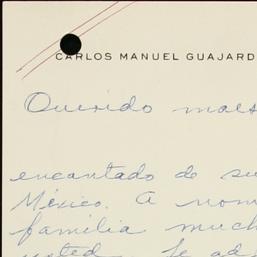 CARLOS MANUEL GUAJARD
Querido maes
encantado de su
México. A nom
familia much
usted. Te ad